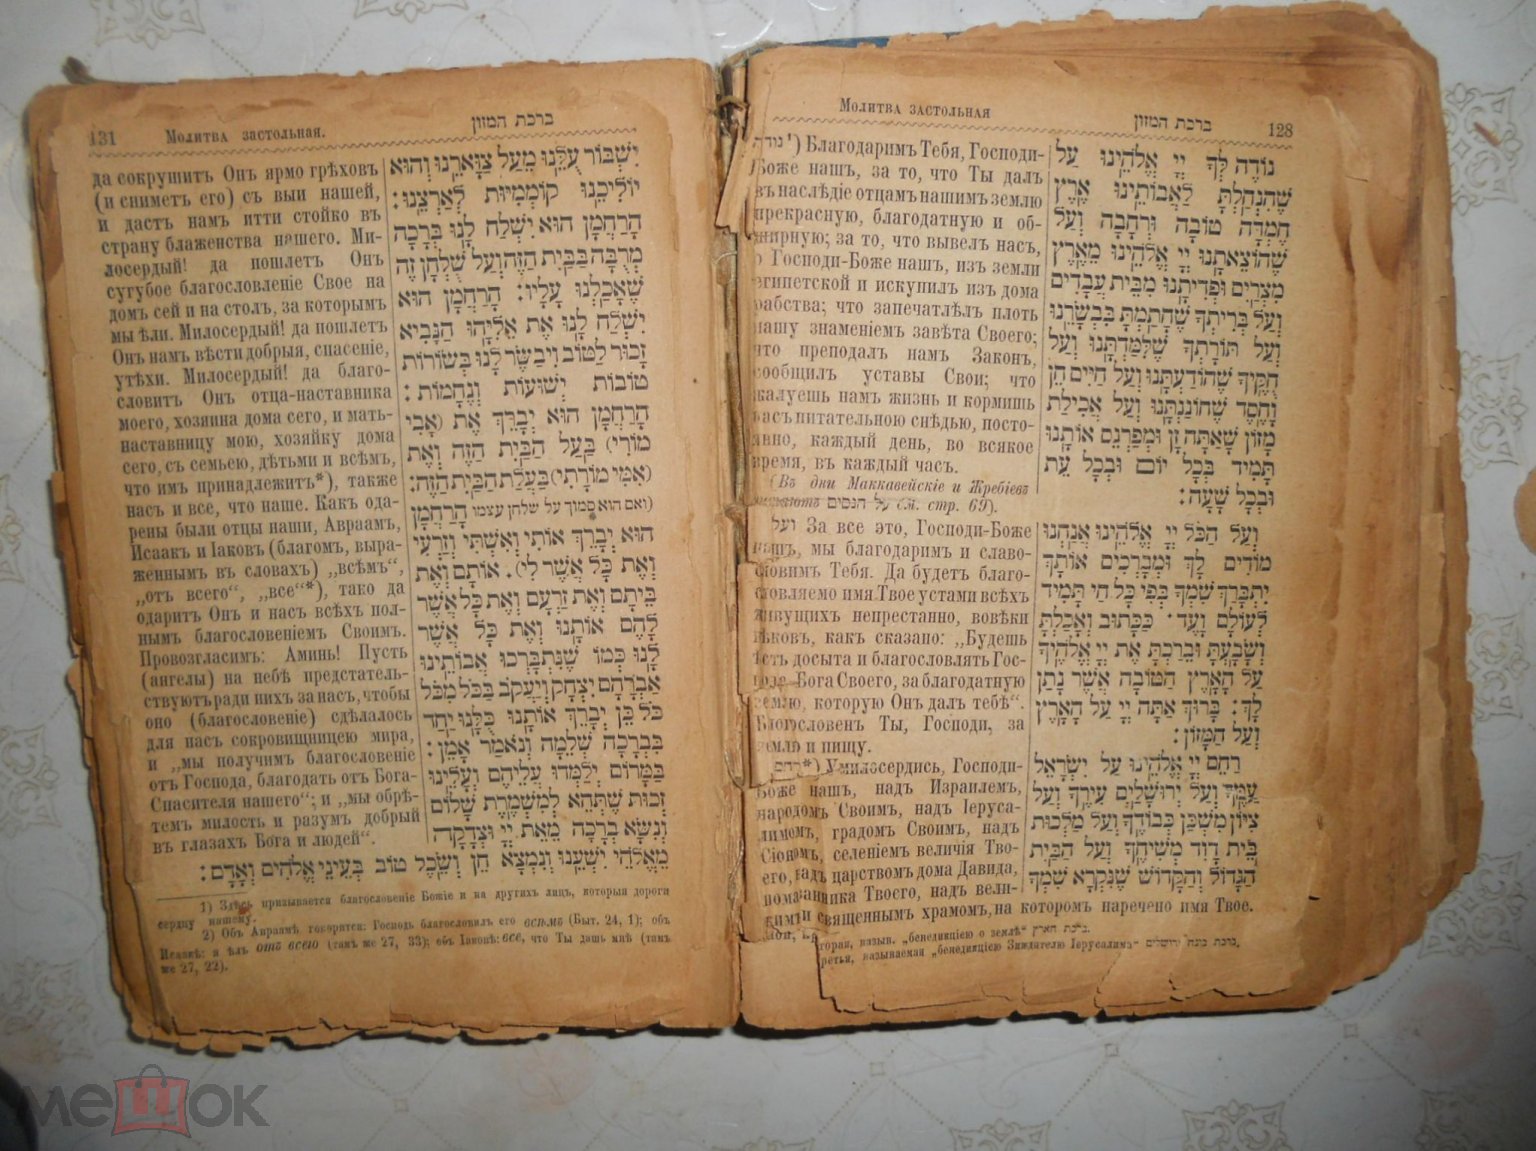 131 Молитва застольная. ברכת המזון
да сокрушитъ Онъ ярмо грѣховъ
(и сниметъ его) съ выи нашей,
и дастъ намъ итти стойко въ
страну блаженства нашего. Ми-
лосердый! да пошлетъ Онъ
сугубое благословленіе Свое на
домъ сей и на столъ, за которымъ
мы ѣли. Милосердый! да пошлетъ
Онъ намъ вѣсти добрыя, спасеніе,
утѣхи. Милосердый! да благо-
словитъ Онъ отца-наставника
моего, хозяина дома сего, и мать-
наставницу мою, хозяйку дома
сего, съ семьею, дѣтьми и всѣмъ,
что имъ принадлежитъ*), также
насъ и все, что наше. Какъ ода-
рены были отцы наши, Авраамъ,
Исаакъ и Іаковъ (благомъ, выра-
женнымъ въ словахъ) „всѣмъ“,
„отъ всего“, „все“*), тако да
одаритъ Онъ и насъ всѣхъ пол-
нымъ благословеніемъ Своимъ.
Провозгласимъ: Аминь! Пусть
(ангелы) на небѣ предстатель-
ствуютъ ради нихъ за насъ, чтобы
оно (благословеніе) сдѣлалось
для насъ сокровищницею мира,
и „мы получимъ благословеніе
отъ Господа, благодать отъ Бога-
Спасителя нашего“; и „мы обрѣ-
темъ милость и разумъ добрый
въ глазахъ Бога и людей“.
יִשְׁבּוֹר עֻלֵּנוּ מֵעַל צַוָּארֵנוּ וְהוּא
יוֹלִיכֵנוּ קוֹמְמִיּוּת לְאַרְצֵנוּ:
הָרַחֲמָן הוּא יִשְׁלַח לָנוּ בְּרָכָה
מְרֻבָּה בַּבַּיִת הַזֶּה וְעַל שֻׁלְחָן זֶה
שֶׁאָכַלְנוּ עָלָיו: הָרַחֲמָן הוּא
יִשְׁלַח לָנוּ אֶת אֵלִיָּהוּ הַנָּבִיא
זָכוּר לַטּוֹב וִיבַשֶּׂר לָנוּ בְּשׂוֹרוֹת
טוֹבוֹת יְשׁוּעוֹת וְנֶחָמוֹת:
הָרַחֲמָן הוּא יְבָרֵךְ אֶת (אָבִי
מוֹרִי) בַּעַל הַבַּיִת הַזֶּה וְאֶת
(אִמִּי מוֹרָתִי) בַּעֲלַת הַבַּיִת הַזֶּה:
(ואם הוא סמוך על שלחן עצמו הָרַחֲמָן
הוּא יְבָרֵךְ אוֹתִי וְאִשְׁתִּי וְזַרְעִי
וְאֶת כָּל אֲשֶׁר לִי). אוֹתָם וְאֶת
בֵּיתָם וְאֶת זַרְעָם וְאֶת כָּל אֲשֶׁר
לָהֶם אוֹתָנוּ וְאֶת כָּל אֲשֶׁר
לָנוּ כְּמוֹ שֶׁנִּתְבָּרְכוּ אֲבוֹתֵינוּ
אַבְרָהָם יִצְחָק וְיַעֲקֹב בַּכֹּל מִכֹּל
כֹּל כֵּן יְבָרֵךְ אוֹתָנוּ כֻּלָּנוּ יַחַד
בִּבְרָכָה שְׁלֵמָה וְנֹאמַר אָמֵן:
בַּמָּרוֹם יְלַמְּדוּ עֲלֵיהֶם וְעָלֵינוּ
זְכוּת שֶׁתְּהֵא לְמִשְׁמֶרֶת שָׁלוֹם
וְנִשָּׂא בְרָכָה מֵאֵת יְיָ וּצְדָקָה
מֵאֱלֹהֵי יִשְׁעֵנוּ וְנִמְצָא חֵן וְשֵׂכֶל טוֹב בְּעֵינֵי אֱלֹהִים וְאָדָם:
1) Здѣсь призывается благословеніе Божіе и на другихъ лицъ, который дороги
сердцу нашему.
2) Объ Авраамѣ говорится: Господь благословилъ его всѣмъ (Быт. 24, 1); объ
Исаакѣ: я ѣлъ отъ всего (тамъ же 27, 33); объ Іаковѣ: все, что Ты дашь мнѣ (тамъ
же 27, 22).
Молитва застольная ברכת המזון 128
נודה ¹) Благодаримъ Тебя, Господи-
Боже нашъ, за то, что Ты далъ
въ наслѣдіе отцамъ нашимъ землю
прекрасную, благодатную и об-
ширную; за то, что вывелъ насъ,
о Господи-Боже нашъ, изъ земли
египетской и искупилъ изъ дома
рабства; что запечатлѣлъ плоть
нашу знаменіемъ завѣта Своего;
что преподалъ намъ Законъ,
сообщилъ уставы Свои; что
жалуешь намъ жизнь и кормишь
насъ питательною снѣдью, посто-
янно, каждый день, во всякое
время, въ каждый часъ.
(Въ дни Маккавейскіе и Жребіевъ
читаютъ על הנסים см. стр. 69).
ועל За все это, Господи-Боже
нашъ, мы благодаримъ и славо-
словимъ Тебя. Да будетъ благо-
словляемо имя Твое устами всѣхъ
живущихъ непрестанно, вовѣки
вѣковъ, какъ сказано: „Будешь
ѣсть досыта и благословлять Гос-
пода Бога Своего, за благодатную
землю, которую Онъ далъ тебѣ“.
Благословенъ Ты, Господи, за
землю и пищу.
רחם *) Умилосердись, Господи-
Боже нашъ, надъ Израилемъ,
народомъ Своимъ, надъ Іеруса-
лимомъ, градомъ Своимъ, надъ
Сіономъ, селеніемъ величія Тво-
его, надъ царствомъ дома Давида,
помазанника Твоего, надъ вели-
кимъ и священнымъ храмомъ, на которомъ наречено имя Твое.
נוֹדֶה לְּךָ יְיָ אֱלֹהֵינוּ עַל
שֶׁהִנְחַלְתָּ לַאֲבוֹתֵינוּ אֶרֶץ
חֶמְדָּה טוֹבָה וּרְחָבָה וְעַל
שֶׁהוֹצֵאתָנוּ יְיָ אֱלֹהֵינוּ מֵאֶרֶץ
מִצְרַיִם וּפְדִיתָנוּ מִבֵּית עֲבָדִים
וְעַל בְּרִיתְךָ שֶׁחָתַמְתָּ בִּבְשָׂרֵנוּ
וְעַל תּוֹרָתְךָ שֶׁלִּמַּדְתָּנוּ וְעַל
חֻקֶּיךָ שֶׁהוֹדַעְתָּנוּ וְעַל חַיִּים חֵן
וָחֶסֶד שֶׁחוֹנַנְתָּנוּ וְעַל אֲכִילַת
מָזוֹן שָׁאַתָּה זָן וּמְפַרְנֵס אוֹתָנוּ
תָּמִיד בְּכָל יוֹם וּבְכָל עֵת
וּבְכָל שָׁעָה:
וְעַל הַכֹּל יְיָ אֱלֹהֵינוּ אֲנַחְנוּ
מוֹדִים לָךְ וּמְבָרְכִים אוֹתָךְ
יִתְבָּרַךְ שִׁמְךָ בְּפִי כָּל חַי תָּמִיד
לְעוֹלָם וָעֶד. כַּכָּתוּב וְאָכַלְתָּ
וְשָׂבָעְתָּ וּבֵרַכְתָּ אֶת יְיָ אֱלֹהֶיךָ
עַל הָאָרֶץ הַטּוֹבָה אֲשֶׁר נָתַן
לָךְ: בָּרוּךְ אַתָּה יְיָ עַל הָאָרֶץ
וְעַל הַמָּזוֹן:
רַחֵם יְיָ אֱלֹהֵינוּ עַל יִשְׂרָאֵל
עַמֶּךָ וְעַל יְרוּשָׁלַיִם עִירֶךָ וְעַל
צִיּוֹן מִשְׁכַּן כְּבוֹדֶךָ וְעַל מַלְכוּת
בֵּית דָּוִד מְשִׁיחֶךָ וְעַל הַבַּיִת
הַגָּדוֹל וְהַקָּדוֹשׁ שֶׁנִּקְרָא שִׁמְךָ
торая, назыв. „бенедикціею о землѣ“ ברכת הארץ.
ретья, называемая „бенедикціею Зиждителю Іерусалима“ ברכת בונה ירושלים.
мешок